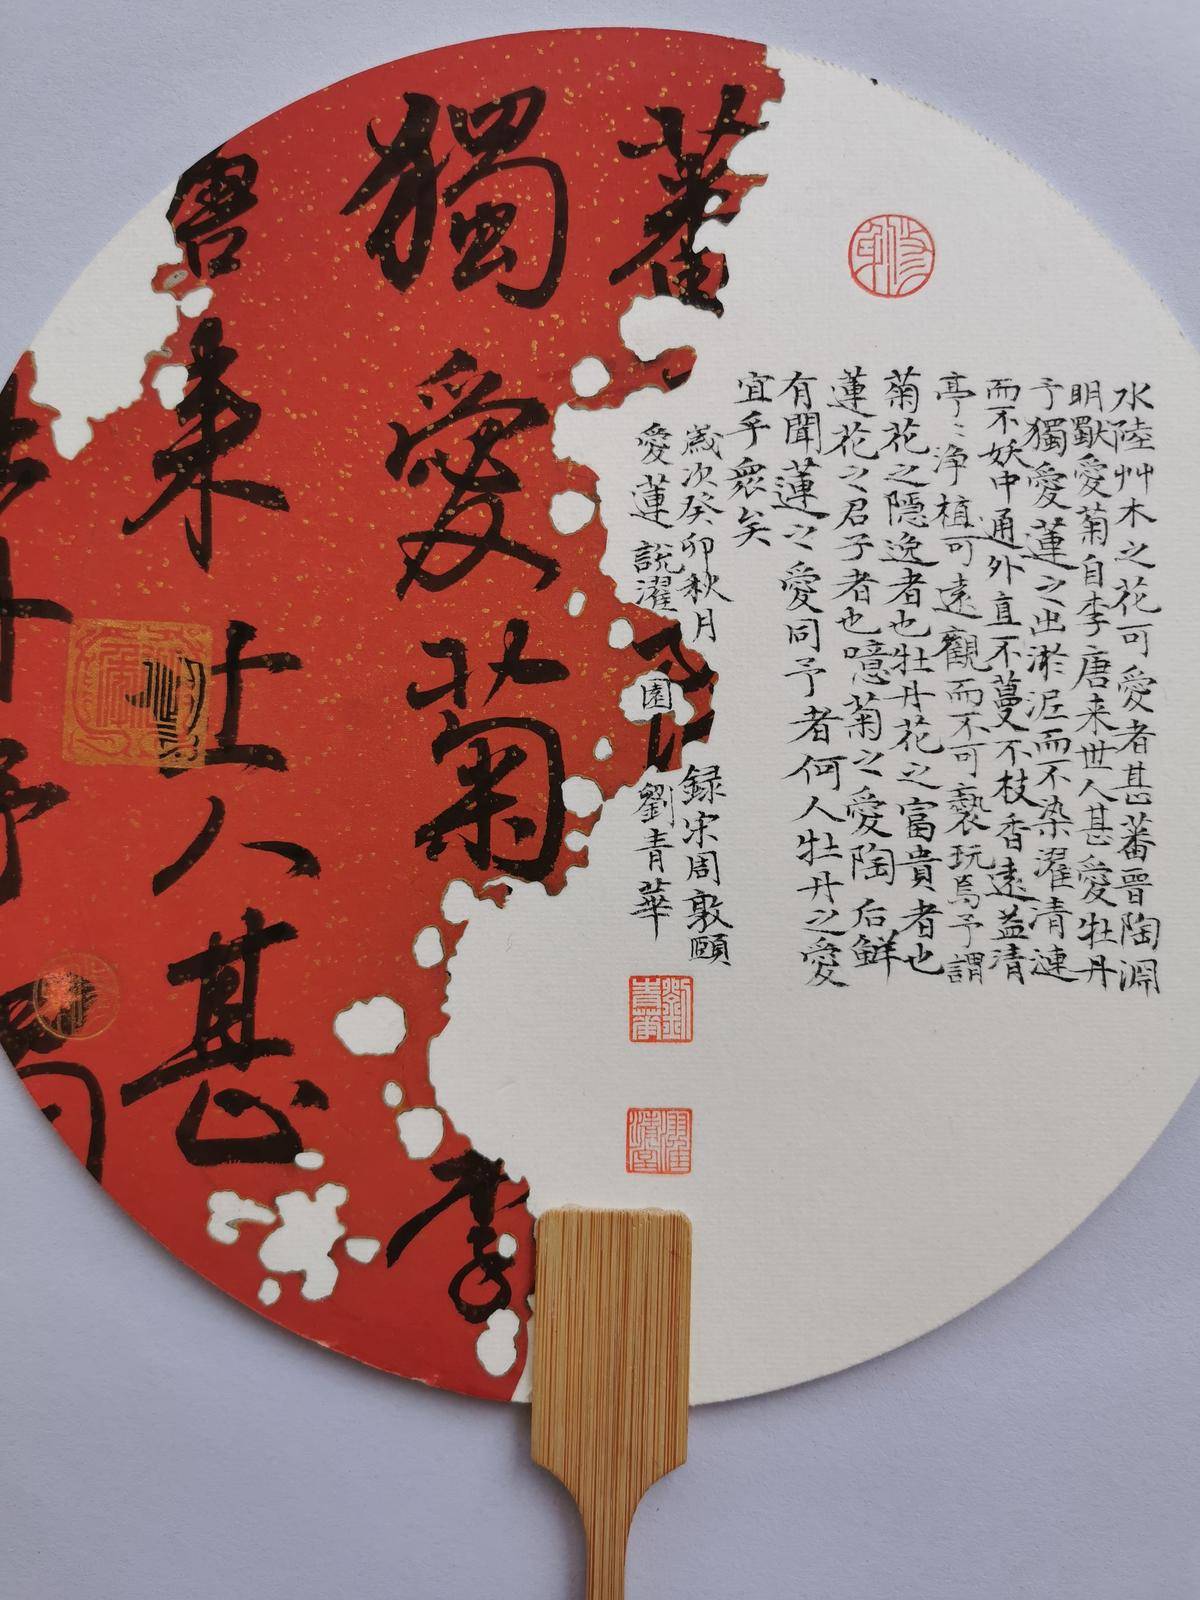 水陸艸木之花可愛者甚蕃晉陶淵
明獨愛菊自李唐来世人甚愛牡丹
予獨愛蓮之出淤泥而不染濯清漣
而不妖中通外直不蔓不枝香遠益清
亭〻浄植可遠觀而不可褻玩焉予謂
菊花之隱逸者也牡丹花之富貴者也
蓮花之君子者也噫菊之愛陶后鮮
有聞蓮之愛同予者何人牡丹之愛
宜乎衆矣
歲次癸卯秋月録宋周敦頤
愛蓮說濯園劉青華
劉青華
蕃
獨愛菊李
来世人甚